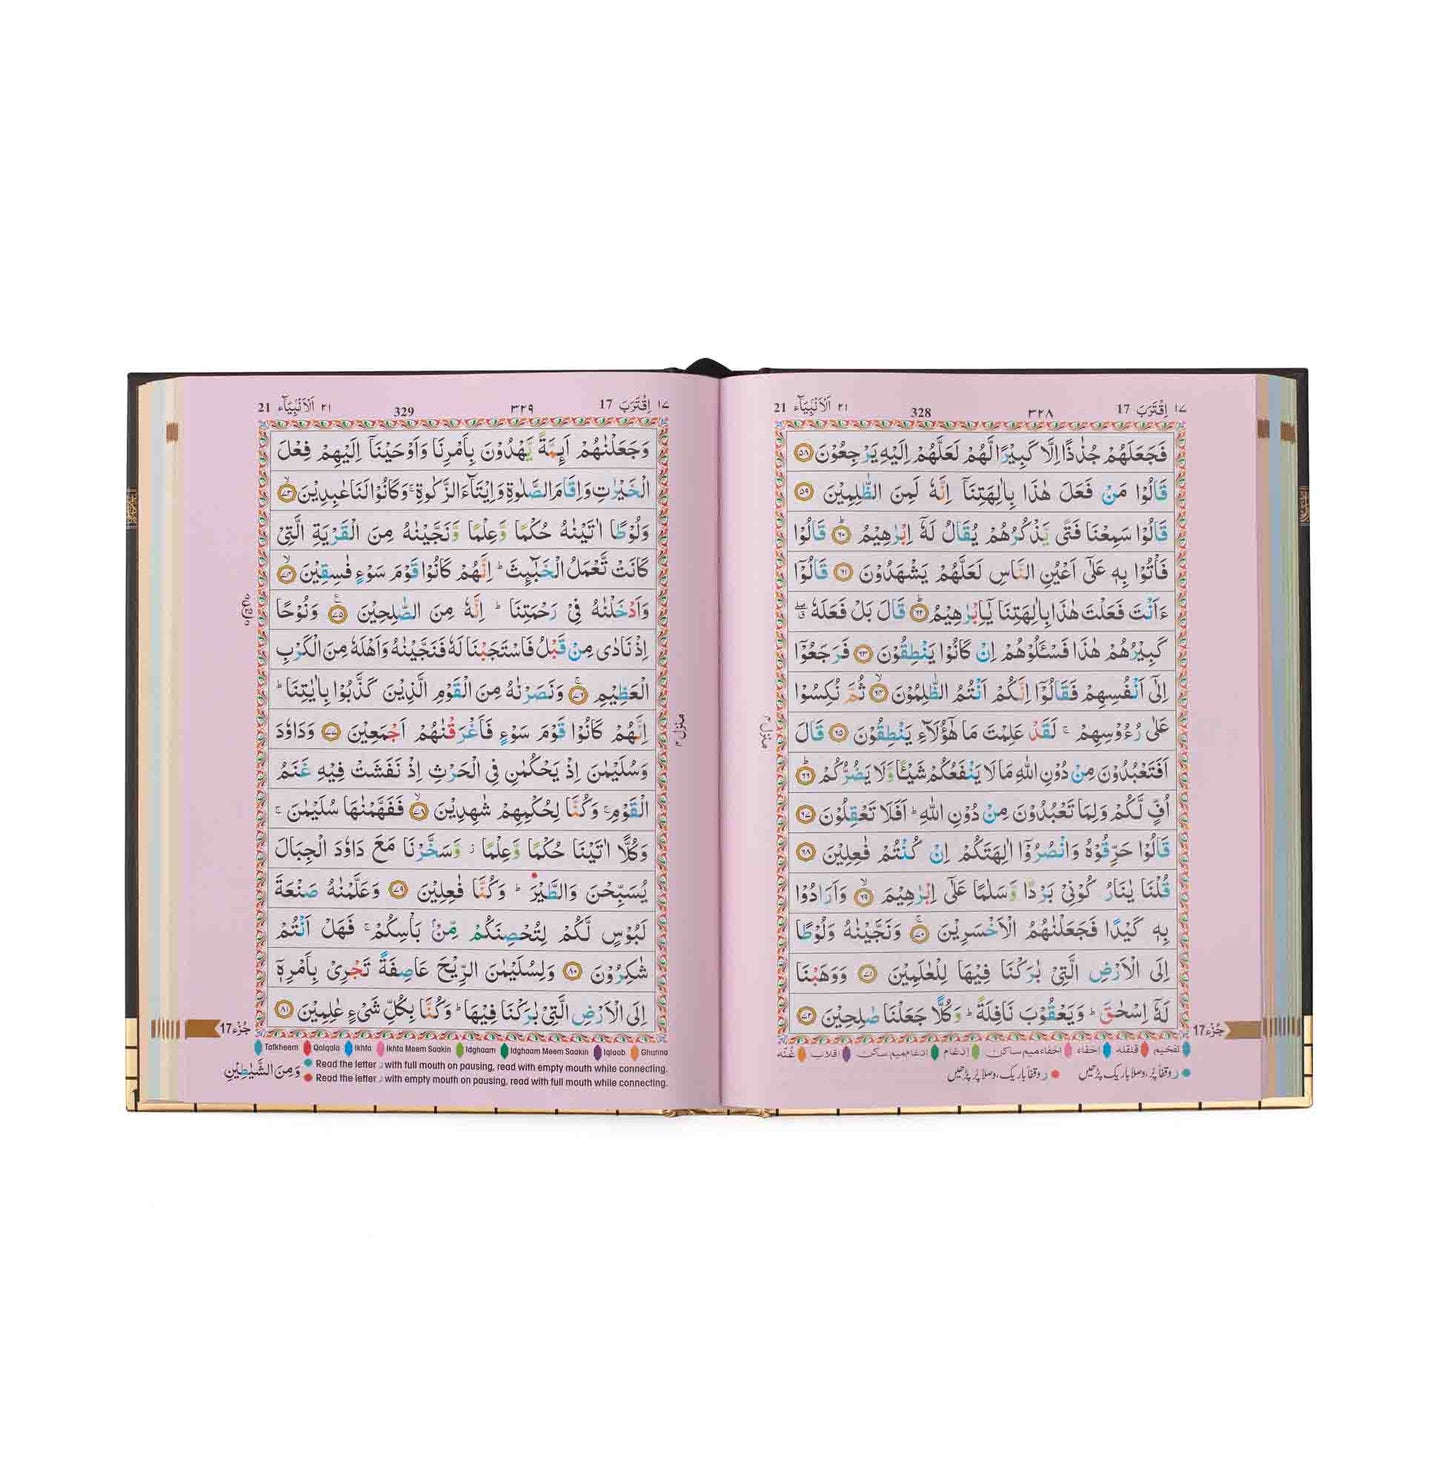 ١٧ اِقْتَرَبَ 17
٣٢٨
328
٢١ اَلْاَنْبِيَآء 21
فَجَعَلَهُمْ جُذٰذًا اِلَّا كَبِيْرًا لَّهُمْ لَعَلَّهُمْ اِلَيْهِ يَرْجِعُوْنَ ٥٨
قَالُوْا مَنْ فَعَلَ هٰذَا بِاٰلِهَتِنَاۤ اِنَّهٗ لَمِنَ الظّٰلِمِيْنَ ٥٩
قَالُوْا سَمِعْنَا فَتًى يَّذْكُرُهُمْ يُقَالُ لَهٗۤ اِبْرٰهِيْمُ ؕ ٦٠ قَالُوْا
فَاْتُوْا بِهٖ عَلٰۤى اَعْيُنِ النَّاسِ لَعَلَّهُمْ يَشْهَدُوْنَ ٦١ قَالُوْۤا
ءَاَنْتَ فَعَلْتَ هٰذَا بِاٰلِهَتِنَا يٰۤاِبْرٰهِيْمُ ؕ ٦٢ قَالَ بَلْ فَعَلَهٗ ۖۗ
كَبِيْرُهُمْ هٰذَا فَسْـَٔلُوْهُمْ اِنْ كَانُوْا يَنْطِقُوْنَ ٦٣ فَرَجَعُوْۤا
اِلٰۤى اَنْفُسِهِمْ فَقَالُوْۤا اِنَّكُمْ اَنْتُمُ الظّٰلِمُوْنَ ۙ ٦٤ ثُمَّ نُكِسُوْا
عَلٰى رُءُوْسِهِمْ ۚ لَقَدْ عَلِمْتَ مَا هٰۤؤُلَآءِ يَنْطِقُوْنَ ٦٥ قَالَ
اَفَتَعْبُدُوْنَ مِنْ دُوْنِ اللّٰهِ مَا لَا يَنْفَعُكُمْ شَيْـًٔا وَّلَا يَضُرُّكُمْ ؕ ٦٦
اُفٍّ لَّكُمْ وَلِمَا تَعْبُدُوْنَ مِنْ دُوْنِ اللّٰهِ ؕ اَفَلَا تَعْقِلُوْنَ ٦٧
قَالُوْا حَرِّقُوْهُ وَانْصُرُوْۤا اٰلِهَتَكُمْ اِنْ كُنْتُمْ فٰعِلِيْنَ ٦٨
قُلْنَا يٰنَارُ كُوْنِيْ بَرْدًا وَّسَلٰمًا عَلٰۤى اِبْرٰهِيْمَ ۙ ٦٩ وَاَرَادُوْا
بِهٖ كَيْدًا فَجَعَلْنٰهُمُ الْاَخْسَرِيْنَ ۚ ٧٠ وَنَجَّيْنٰهُ وَلُوْطًا
اِلَى الْاَرْضِ الَّتِيْ بٰرَكْنَا فِيْهَا لِلْعٰلَمِيْنَ ٧١ وَوَهَبْنَا
لَهٗۤ اِسْحٰقَ ؕ وَيَعْقُوْبَ نَافِلَةً ؕ وَكُلًّا جَعَلْنَا صٰلِحِيْنَ ٧٢
منزل ٤
جُزْء 17
تفخيم قلقله اخفاء اخفاء ميم ساكن ادغام ادغام ميم ساكن اقلاب غُنّه
ر وقفاً پُر، وصلاً باریک پڑھیں ر وقفاً باریک، وصلاً پُر پڑھیں
١٧ اِقْتَرَبَ 17
٣٢٩
329
٢١ اَلْاَنْبِيَآء 21
وَجَعَلْنٰهُمْ اَئِمَّةً يَّهْدُوْنَ بِاَمْرِنَا وَاَوْحَيْنَاۤ اِلَيْهِمْ فِعْلَ
الْخَيْرٰتِ وَاِقَامَ الصَّلٰوةِ وَاِيْتَآءَ الزَّكٰوةِ ۚ وَكَانُوْا لَنَا عٰبِدِيْنَ ۙ ٧٣
وَلُوْطًا اٰتَيْنٰهُ حُكْمًا وَّعِلْمًا وَّنَجَّيْنٰهُ مِنَ الْقَرْيَةِ الَّتِيْ
كَانَتْ تَّعْمَلُ الْخَبٰٓئِثَ ؕ اِنَّهُمْ كَانُوْا قَوْمَ سَوْءٍ فٰسِقِيْنَ ۙ ٧٤
وَاَدْخَلْنٰهُ فِيْ رَحْمَتِنَا ؕ اِنَّهٗ مِنَ الصّٰلِحِيْنَ ٧٥ وَنُوْحًا
اِذْ نَادٰى مِنْ قَبْلُ فَاسْتَجَبْنَا لَهٗ فَنَجَّيْنٰهُ وَاَهْلَهٗ مِنَ الْكَرْبِ
الْعَظِيْمِ ۚ ٧٦ وَنَصَرْنٰهُ مِنَ الْقَوْمِ الَّذِيْنَ كَذَّبُوْا بِاٰيٰتِنَا ؕ
اِنَّهُمْ كَانُوْا قَوْمَ سَوْءٍ فَاَغْرَقْنٰهُمْ اَجْمَعِيْنَ ٧٧ وَدَاوٗدَ
وَسُلَيْمٰنَ اِذْ يَحْكُمٰنِ فِي الْحَرْثِ اِذْ نَفَشَتْ فِيْهِ غَنَمُ
الْقَوْمِ ۚ وَكُنَّا لِحُكْمِهِمْ شٰهِدِيْنَ ۙ ٧٨ فَفَهَّمْنٰهَا سُلَيْمٰنَ ۚ
وَكُلًّا اٰتَيْنَا حُكْمًا وَّعِلْمًا ؗ وَّسَخَّرْنَا مَعَ دَاوٗدَ الْجِبَالَ
يُسَبِّحْنَ وَالطَّيْرَ ؕ وَكُنَّا فٰعِلِيْنَ ٧٩ وَعَلَّمْنٰهُ صَنْعَةَ
لَبُوْسٍ لَّكُمْ لِتُحْصِنَكُمْ مِّنْۢ بَاْسِكُمْ ۚ فَهَلْ اَنْتُمْ
شٰكِرُوْنَ ٨٠ وَلِسُلَيْمٰنَ الرِّيْحَ عَاصِفَةً تَجْرِيْ بِاَمْرِهٖۤ
اِلَى الْاَرْضِ الَّتِيْ بٰرَكْنَا فِيْهَا ؕ وَكُنَّا بِكُلِّ شَيْءٍ عٰلِمِيْنَ ٨١
منزل ٤
جُزْء 17
Tafkheem Qalqala Ikhfa Ikhfa Meem Saakin Idghaam Idghaam Meem Saakin Iqlaab Ghunna
Read the letter ر with full mouth on pausing, read with empty mouth while connecting.
Read the letter ر with empty mouth on pausing, read with full mouth while connecting.
وَمِنَ الشَّيٰطِيْنِ